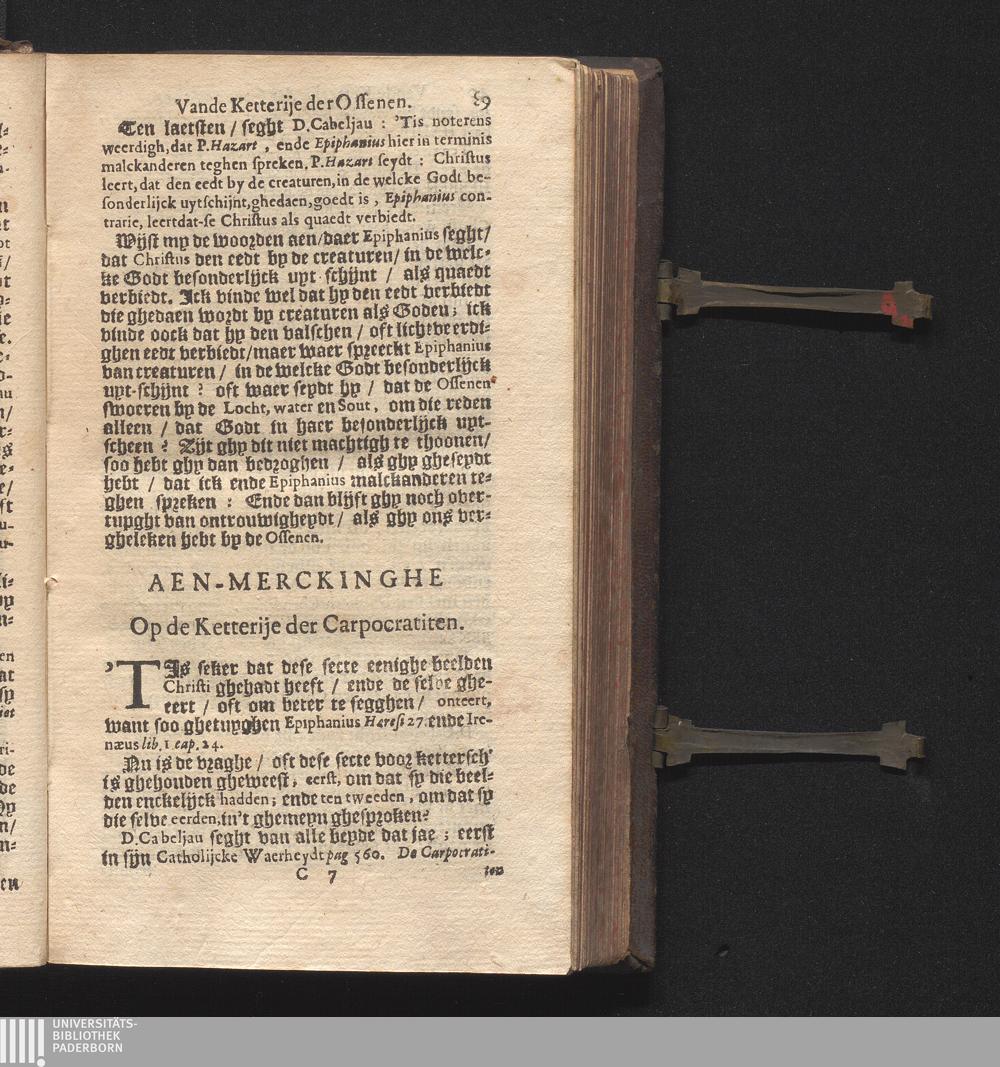 Vande Ketterije der Ossenen. 59
Ten laetsten / seght D.Cabeljau : 'Tis noterens
weerdigh, dat P.Hazart, ende Epiphanius hier in terminis
malckanderen teghen spreken. P.Hazart seydt : Christus
leert, dat den eedt by de creaturen, in de welcke Godt be-
sonderlijck uytschijnt, ghedaen, goedt is, Epiphanius con-
trarie, leertdat-se Christus als quaedt verbiedt.
Wijst my de woorden aen/daer Epiphanius seght/
dat Christus den eedt by de creaturen/ in de welc-
ke Godt besonderlijck uyt schijnt / als quaedt
verbiedt. Ick vinde wel dat hy den eedt verbiedt
die ghedaen wordt by creaturen als Goden; ick
vinde oock dat hy den valschen / oft lichtveerdi-
ghen eedt verbiedt/maer waer spreeckt Epiphanius
van creaturen / in de welcke Godt besonderlijck
uyt-schijnt ? oft waer seydt hy / dat de Ossenen
swoeren by de Locht, water en Sout, om die reden
alleen / dat Godt in haer besonderlijck uyt-
scheen ? Zijt ghy dit niet machtigh te thoonen/
soo hebt ghy dan bedroghen / als ghy gheseydt
hebt / dat ick ende Epiphanius malckanderen te-
ghen spreken : Ende dan blijft ghy noch over-
tuyght van ontrouwigheydt / als ghy ons ver-
gheleken hebt by de Ossenen.
AEN-MERCKINGHE
Op de Ketterije der Carpocratiten.
'TIs seker dat dese secte eenighe beelden
Christi ghehadt heeft / ende de selve ghe-
eert / oft om beter te segghen / onteert,
want soo ghetuyghen Epiphanius Heresi 27. ende Ire-
næus lib. 1 cap. 24.
Nu is de vraghe / oft dese secte voor kettersch
is ghehouden gheweest; eerst, om dat sy die beel-
den enckelijck hadden; ende ten tweeden, om dat sy
die selve eerden, in't ghemeyn ghesproken?
D.Cabeljau seght van alle beyde dat jae ; eerst
in sijn Catholijcke Waerheydt pag 560. De Carpocrati-
C 7 ten
UNIVERSITÄTS-
BIBLIOTHEK
PADERBORN